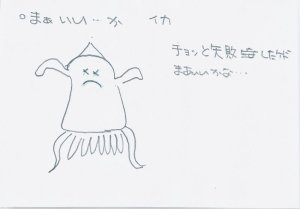 ○まぁいい‥か イカ
チョンと失敗したケド
まあいいかな…